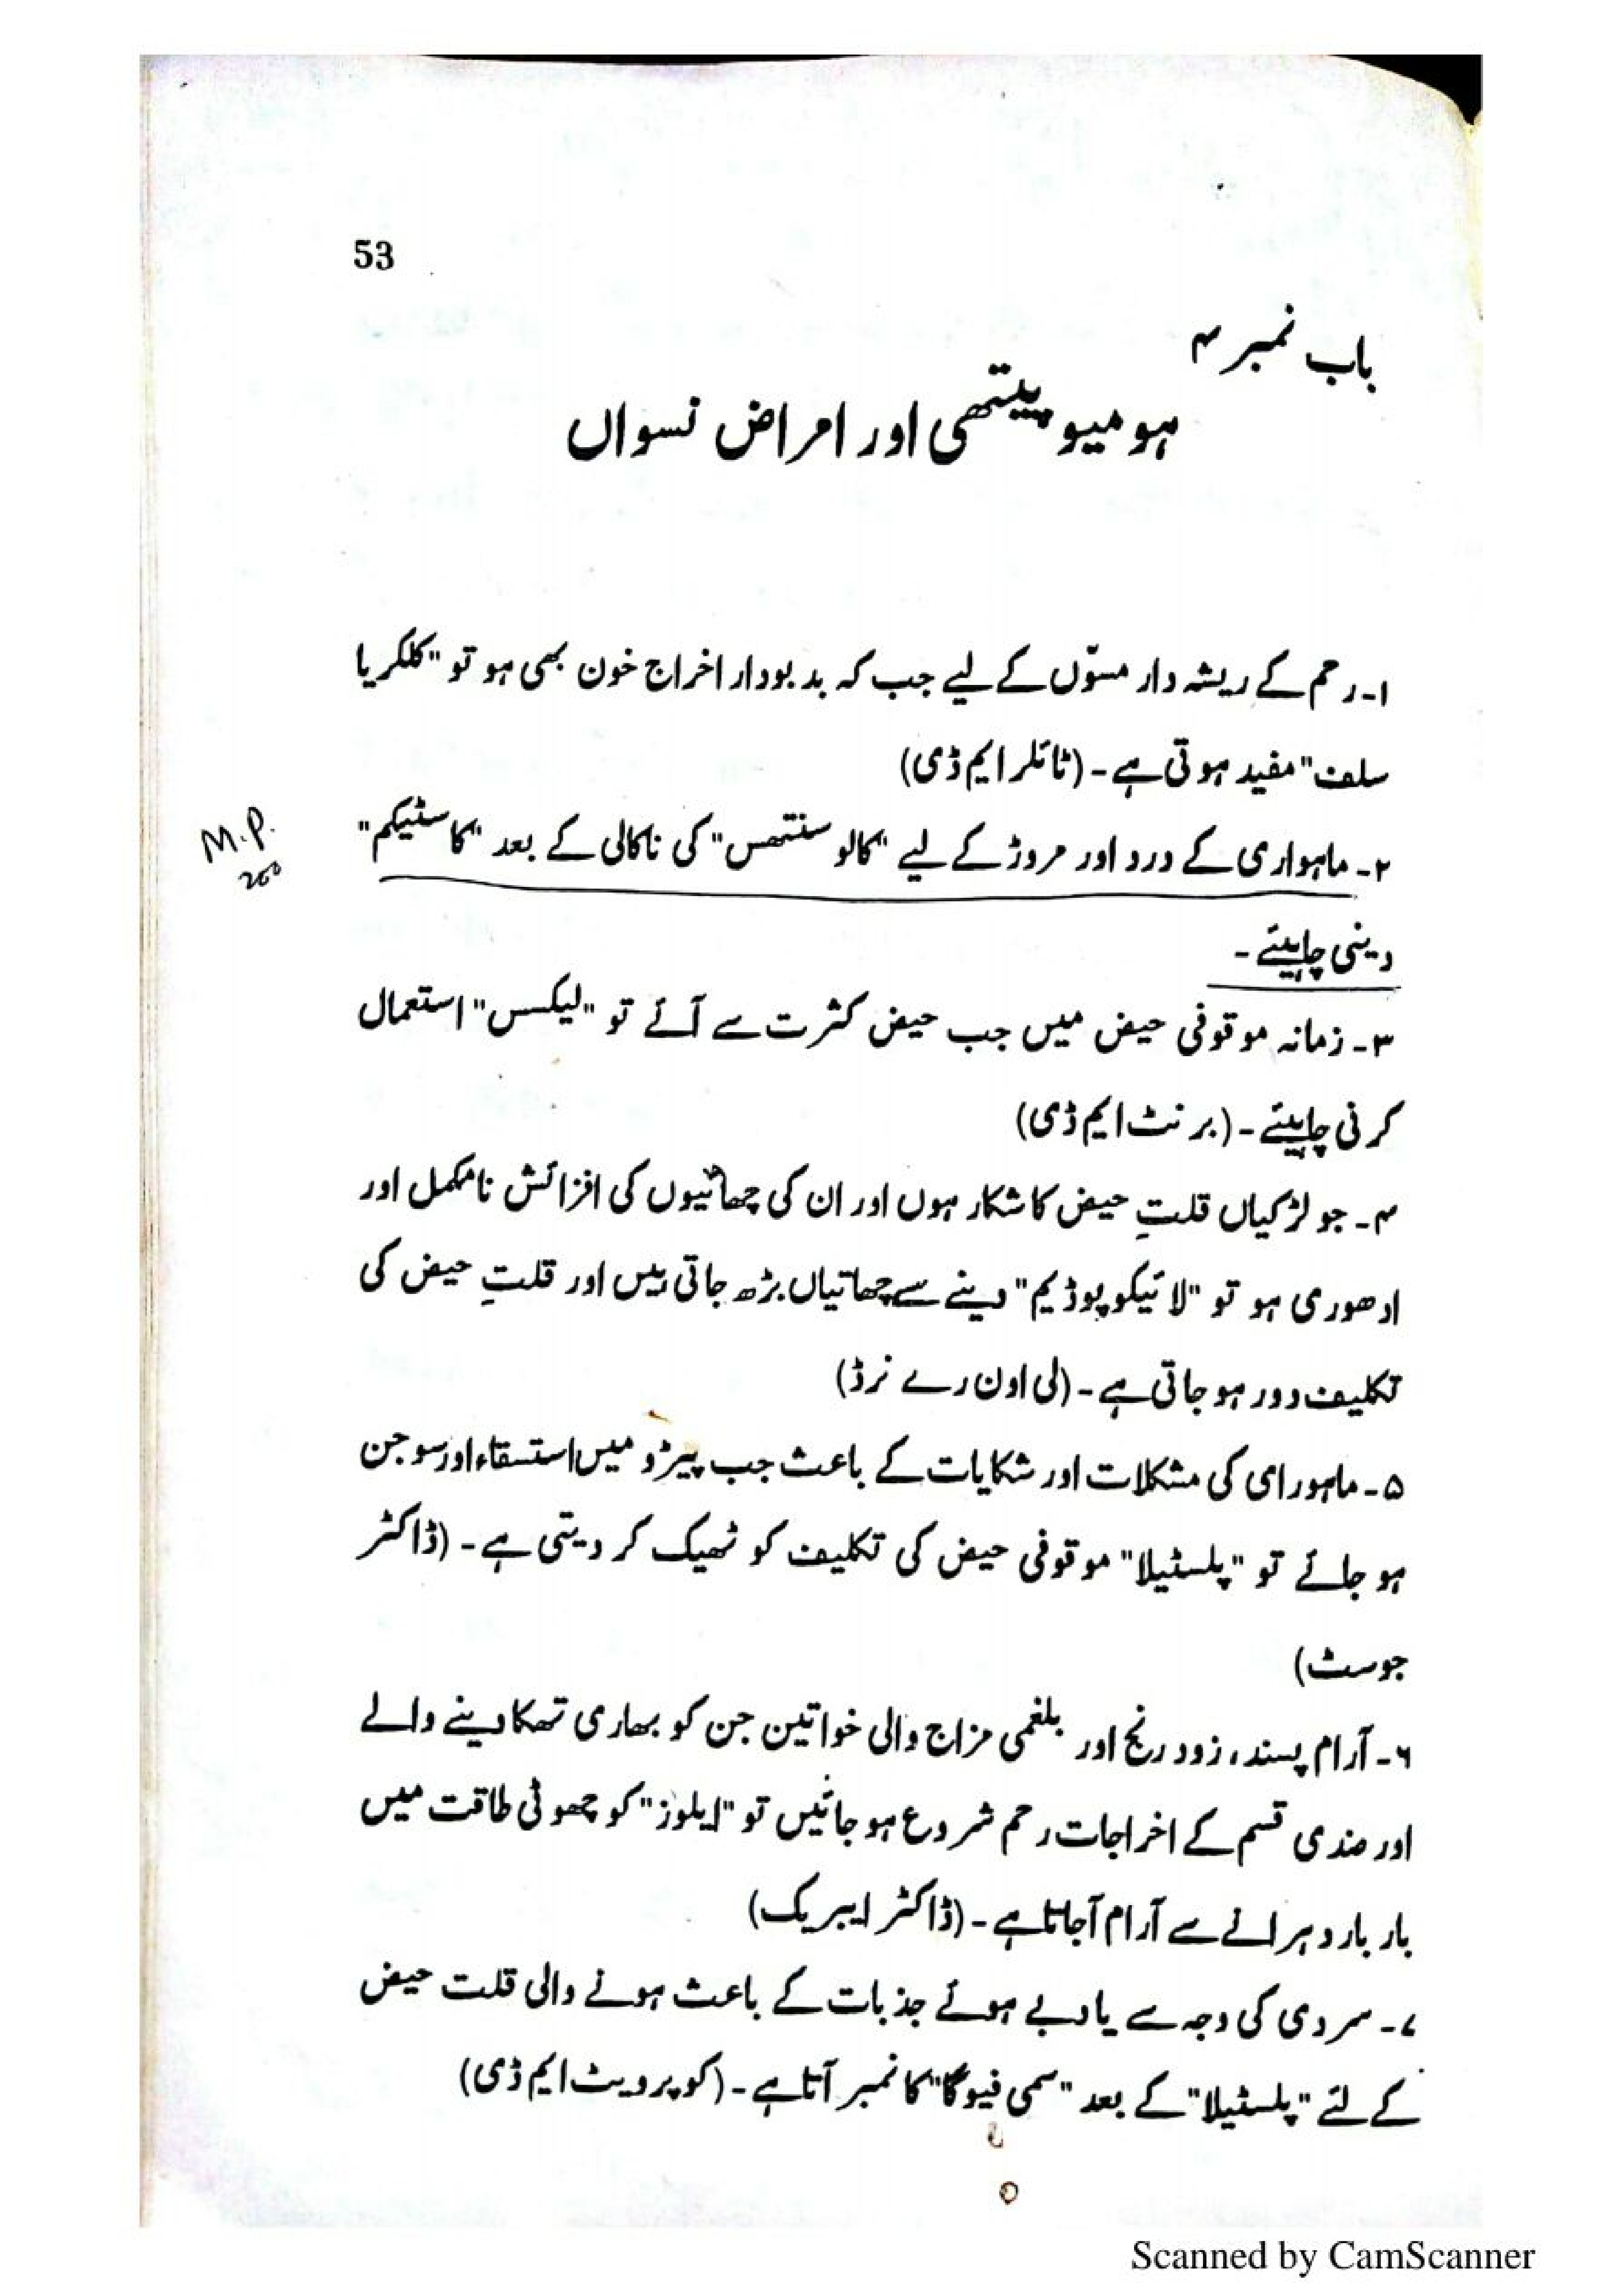 53
باب نمبر ۴
ہومیوپیتھی اور امراض نسواں
۱۔ رحم کے ریشہ دار مسوّں کے لیے جب کہ بدبودار اخراج خون بھی ہو تو "کلکریا
سلف" مفید ہوتی ہے۔ (ٹائلر ایم ڈی)
M.P.
200
۲۔ ماہواری کے درد اور مروڑ کے لیے "کالوسنتھس" کی ناکالی کے بعد "کاسٹیکم"
دینی چاہیئے۔
۳۔ زمانہ موقوفی حیض میں جب حیض کثرت سے آئے تو "لیکسس" استعمال
کرنی چاہیئے۔ (برنٹ ایم ڈی)
۴۔ جو لڑکیاں قلتِ حیض کا شکار ہوں اور ان کی چھاتیوں کی افزائش نامکمل اور
ادھوری ہو تو "لائیکوپوڈیم" دینے سے چھاتیاں بڑھ جاتی ہیں اور قلتِ حیض کی
تکلیف دور ہو جاتی ہے۔ (لی اون رے نرڈ)
۵۔ ماہورای کی مشکلات اور شکایات کے باعث جب پیڑو میں استسقاء اور سوجن
ہو جائے تو "پلسٹیلا" موقوفی حیض کی تکلیف کو ٹھیک کر دیتی ہے۔ (ڈاکٹر
جوسٹ)
۶۔ آرام پسند، زود رنج اور بلغمی مزاج والی خواتین جن کو بھاری تھکا دینے والے
اور ضدی قسم کے اخراجات رحم شروع ہو جائیں تو "ایلوز" کو چھوٹی طاقت میں
بار بار دہرانے سے آرام آجاتا ہے۔ (ڈاکٹر ایبریک)
۷۔ سردی کی وجہ سے یا دبے ہوئے جذبات کے باعث ہونے والی قلت حیض
کے لئے "پلسٹیلا" کے بعد "سمی فیوگا" کا نمبر آتا ہے۔ (کوپرویٹ ایم ڈی)
Scanned by CamScanner